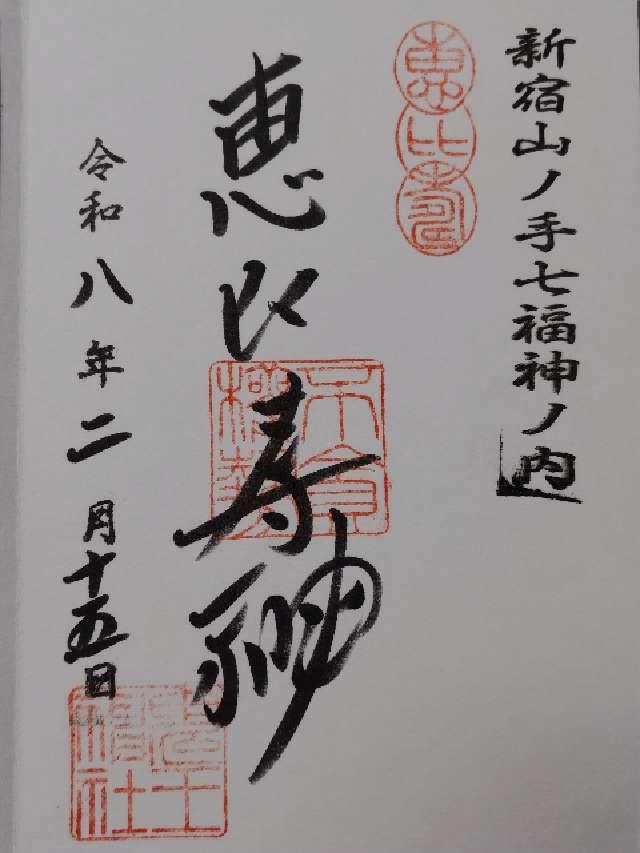 新宿山ノ手七福神ノ内
恵比寿
恵比寿神
令和八年二月十五日